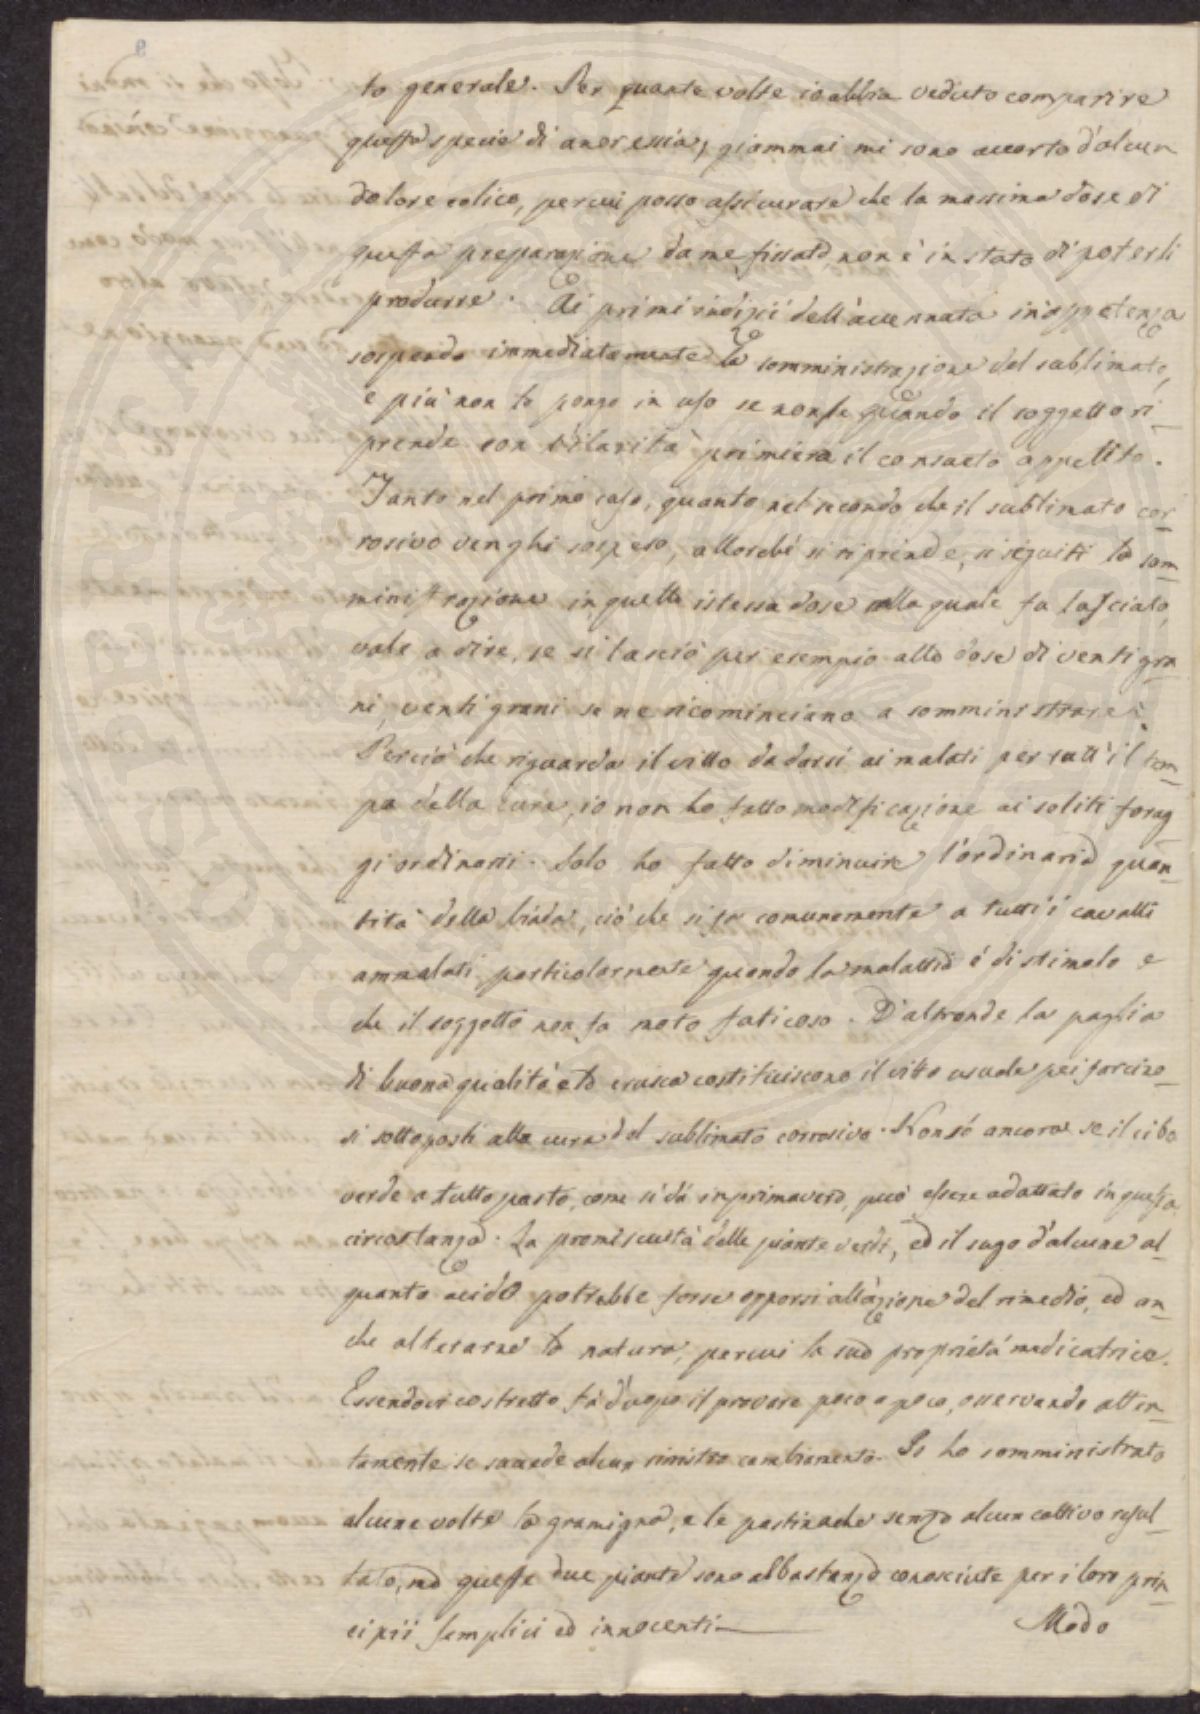 to generale. Per quante volte io abbia veduto comparire
questa specie di anoressia, giammai mi sono accorto d'alcun
dolore colico, per cui posso assicurare che la massima dose di
questa preparazione da me fissata non è in stato di poterli
produrre. Ai primi indizii dell'accennata inappetenza
sospendo immediatamente la somministrazione del sublimato,
e più non lo pongo in uso se non se quando il soggetto ri-
prende con l'ilarità primiera il consueto appetito.
Tanto nel primo caso, quanto nel secondo che il sublimato cor-
rosivo venghi sospeso, allorché si riprende, si seguiti la som-
ministrazione in quella istessa dose alla quale fu lasciato,
vale a dire, se si lasciò per esempio alla dose di venti gra-
ni, venti grani se ne ricominciano a somministrare.
Per ciò che riguarda il vitto da darsi ai malati per tutt'il tem-
po della cura, io non ho fatto modificazione ai soliti forag-
gi ordinarii. Solo ho fatto diminuire l'ordinaria quan-
tità della biada, ciò che si fa comunemente a tutti i cavalli
ammalati, particolarmente quando la malattia è di stimolo e
che il soggetto non fa moto faticoso. D'altronde la paglia
di buona qualità e la crusca costituiscono il vitto usuale pei farcino-
si sottoposti alla cura del sublimato corrosivo. Non só ancora se il cibo
verde a tutto pasto, come si dà in primavera, può essere adattato in questa
circostanza. La promiscuità delle piante verdi, ed il sugo d'alcune al-
quanto acido potrebbe forse opporsi all'azione del rimedio, ed an-
che alterarne la natura, per cui la sua proprietà medicatrice.
Essendovi costretto fa d'uopo il provare poco a poco, osservando atten-
tamente se succede alcun sinistro cambiamento. Io ho somministrato
alcune volte la gramigna, e le pastinache senza alcun cattivo resul-
tato, ma queste due piante sono abbastanza conosciute per i loro prin-
cipii semplici ed innocenti
Modo